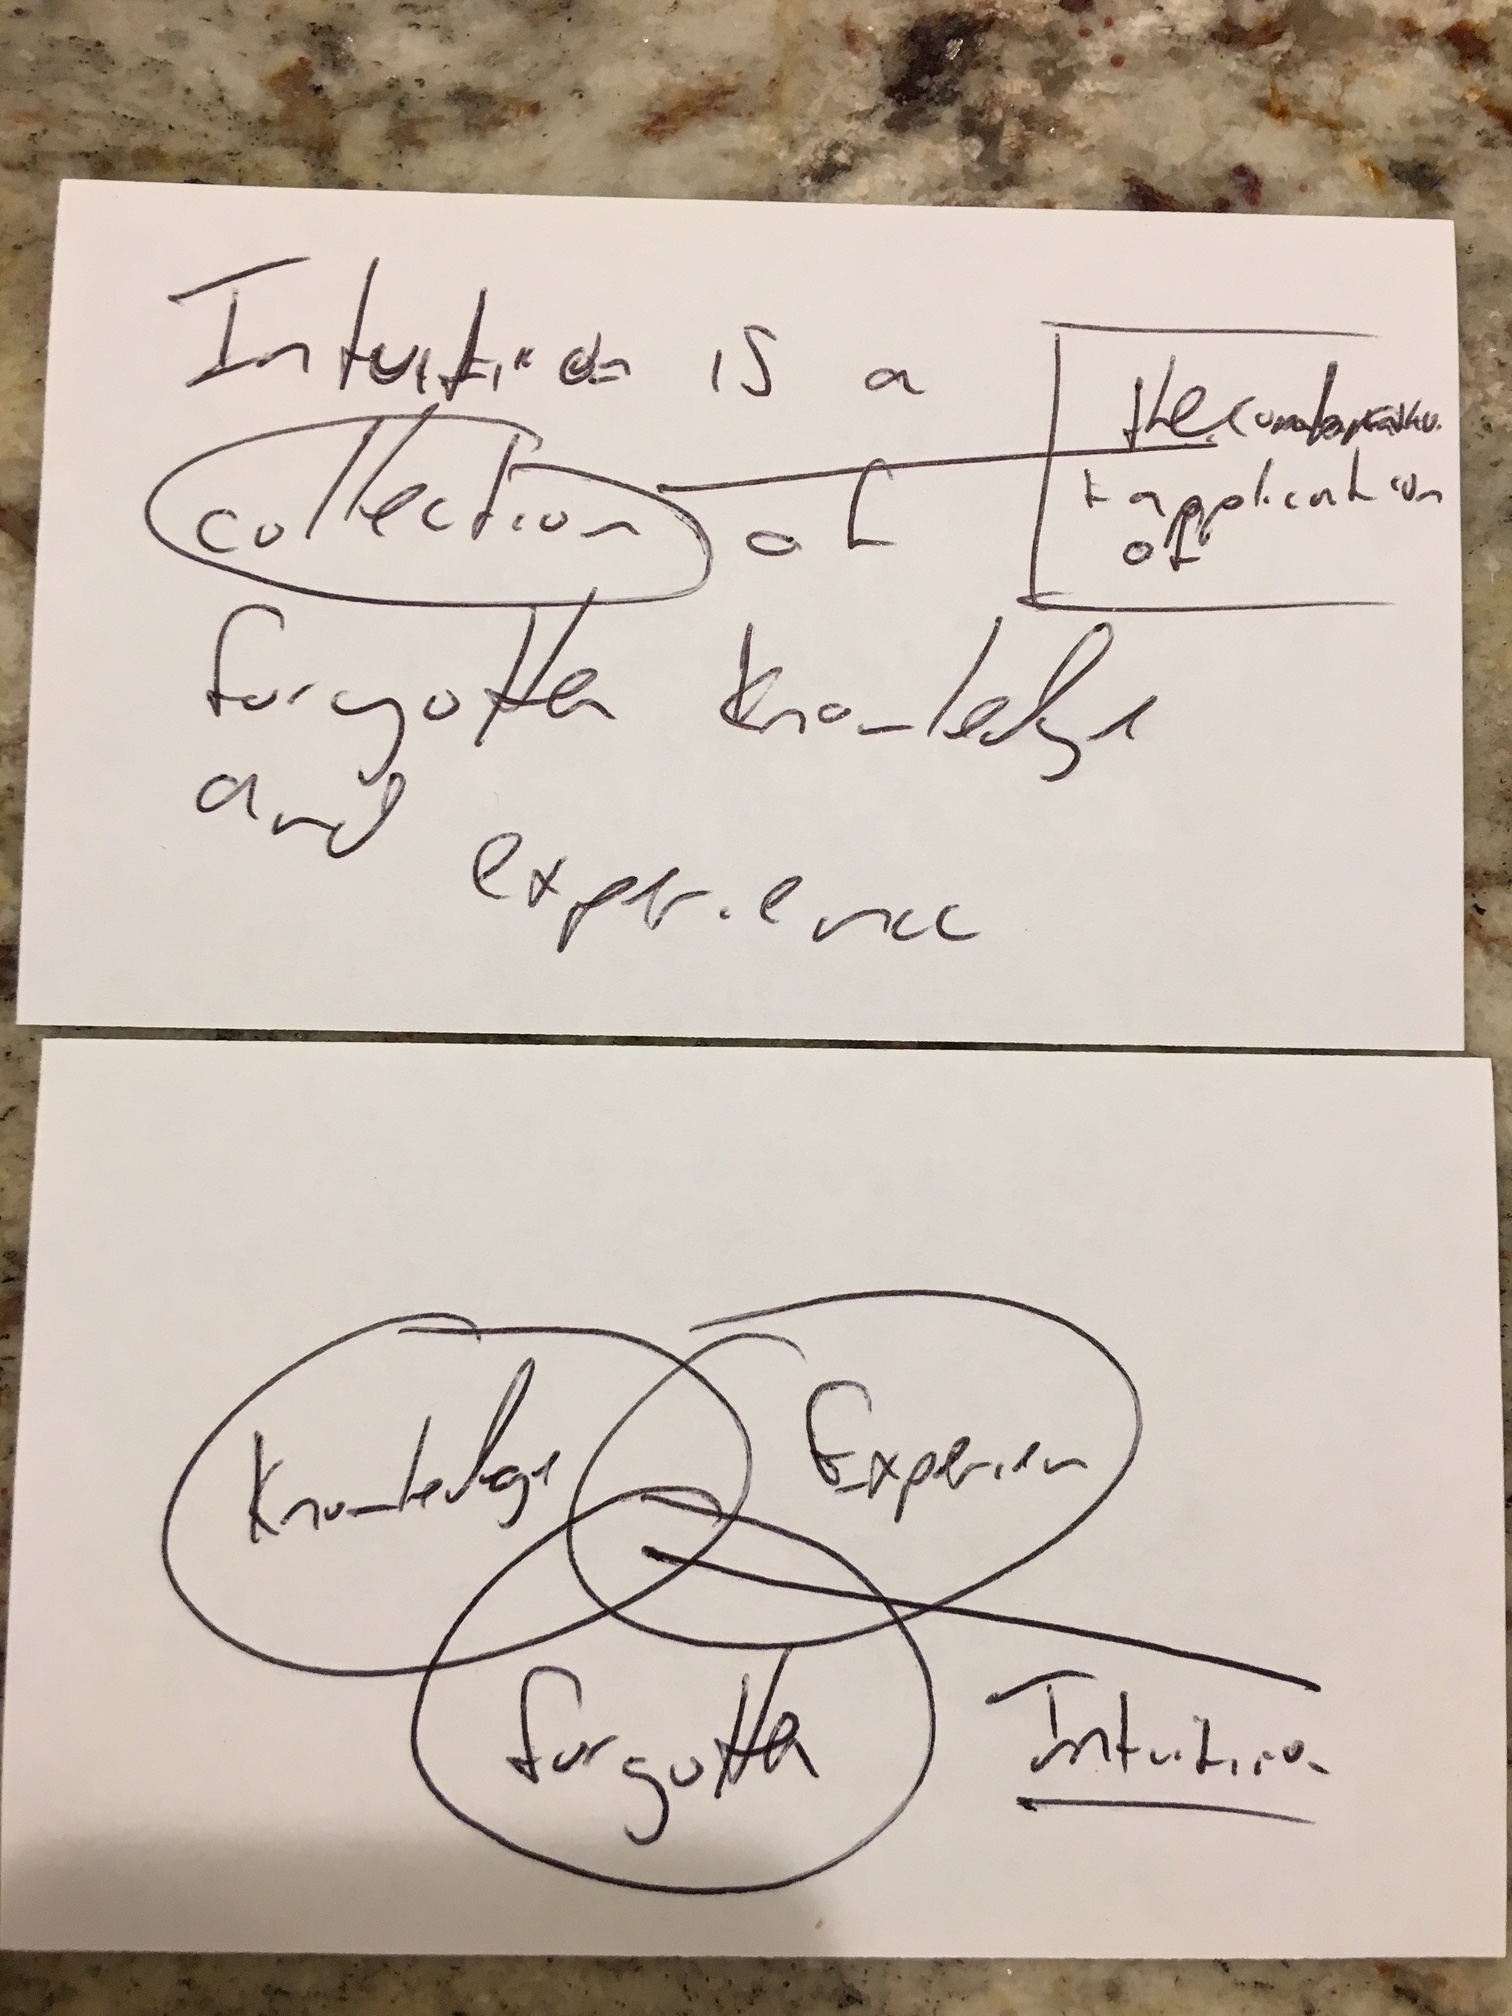 Intuition is a
collection of
the
+ application
of
forgotten knowledge
and experience
Knowledge
Experien
forgotten
Intuition